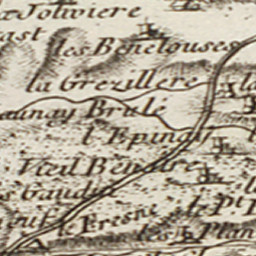 Joliviere
ast
les Benelouses
la Grezillere
la
aunay Brulé
l'Epinay
Vieil
s Gaudin
le Fresne
le P.t
les Plan